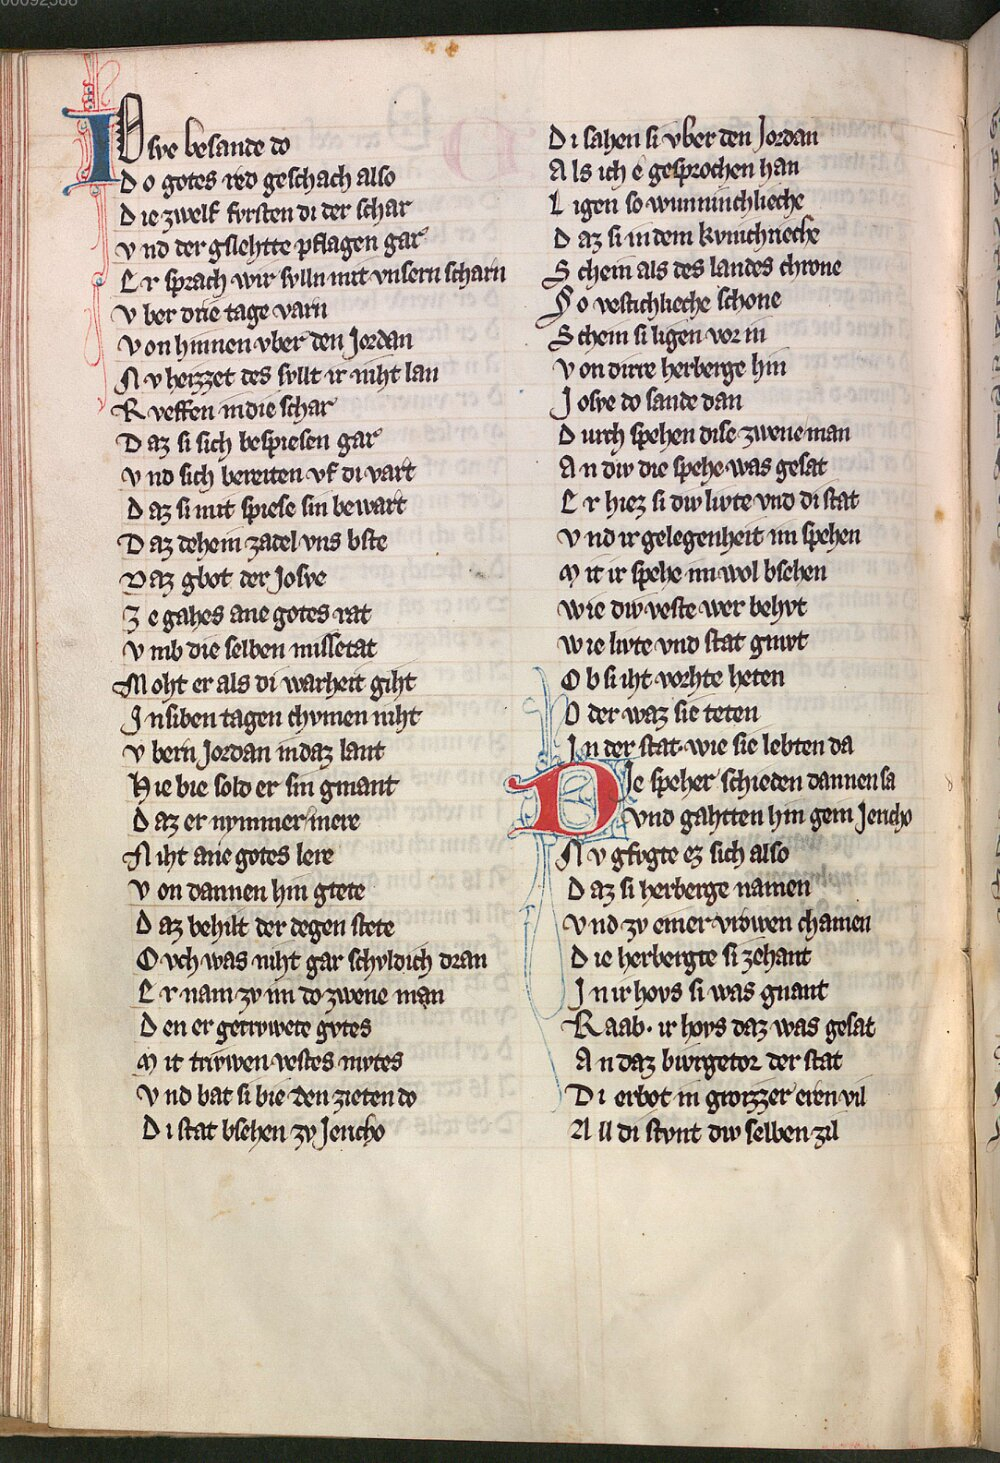 00092588
IOsve besande do
Do gotes red geschach also
Die zwelf fvrsten di der schar
Vnd der gslehtte pflagen gar
Er sprach wir svlln mit vnsern scharn
Vber drie tage varn
Von hinnen vber den Jordan
Nv heizzet des svllt ir niht lan
Rveffen in die schar
Daz si sich bespiesen gar
Vnd sich bereiten vf di vart
Daz si mit spiese sin bewart
Daz dehein zadel vns bste
Daz gbot der Josve
Ze gahes ane gotes rat
Vmb die selben missetat
Moht er als di warheit giht
In siben tagen chvmen niht
Vbern Jordan in daz lant
Hie bie sold er sin gmant
Daz er nymmer mere
Niht ane gotes lere
Von dannen hin gtete
Daz behilt der degen stete
Ovch was niht gar schvldich dran
Er nam zv im do zwene man
Den er getrwete gvtes
Mit triwen vestes mvtes
Vnd bat si bie den zieten do
Di stat bsehen zv Jericho
Di sahen si vber den Jordan
Als ich e gesprochen han
Ligen so wunnichlieche
Daz si in dem kvnichrieche
Schein als des landes chrone
So vestichlieche schone
Schein si ligen vor in
Von dirre herberge hin
Josve do sande dan
Durch spehen dise zwene man
An div die spehe was gesat
Er hiez si div livte vnd di stat
Vnd ir gelegenheit im spehen
Mit ir spehe im wol bsehen
Wie div veste wer behvt
Wie livte vnd stat gmvt
Ob si iht vorhte heten
Oder waz sie teten
In der stat wie sie lebten da
Die speher schieden dannen sa
Vnd gahtten hin gem Jericho
Nv gfvgte ez sich also
Daz si herberge namen
Vnd zv einer vrowen chamen
Die herbergte si zehant
In ir hovs si was gnant
Raab. ir hovs daz was gesat
An daz bvrgetor der stat
Di erbot in grozzer eren vil
All di stvnt div selben zil